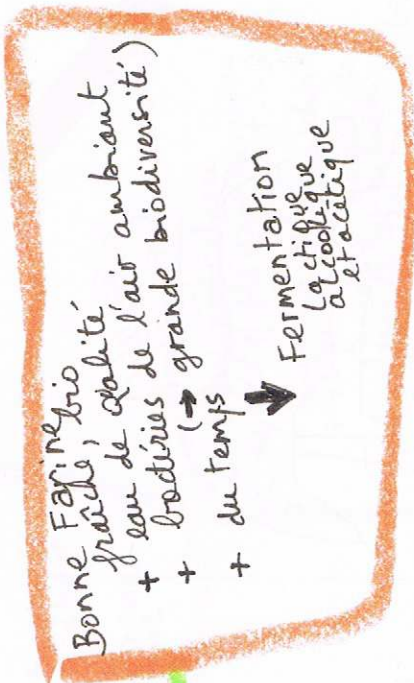 Bonne Farine
fraîche, bio
+ eau de qualité
+ bactéries de l'air ambiant
(→ grande biodiversité)
+ du temps
Fermentation
lactique
alcoolique
et acétique